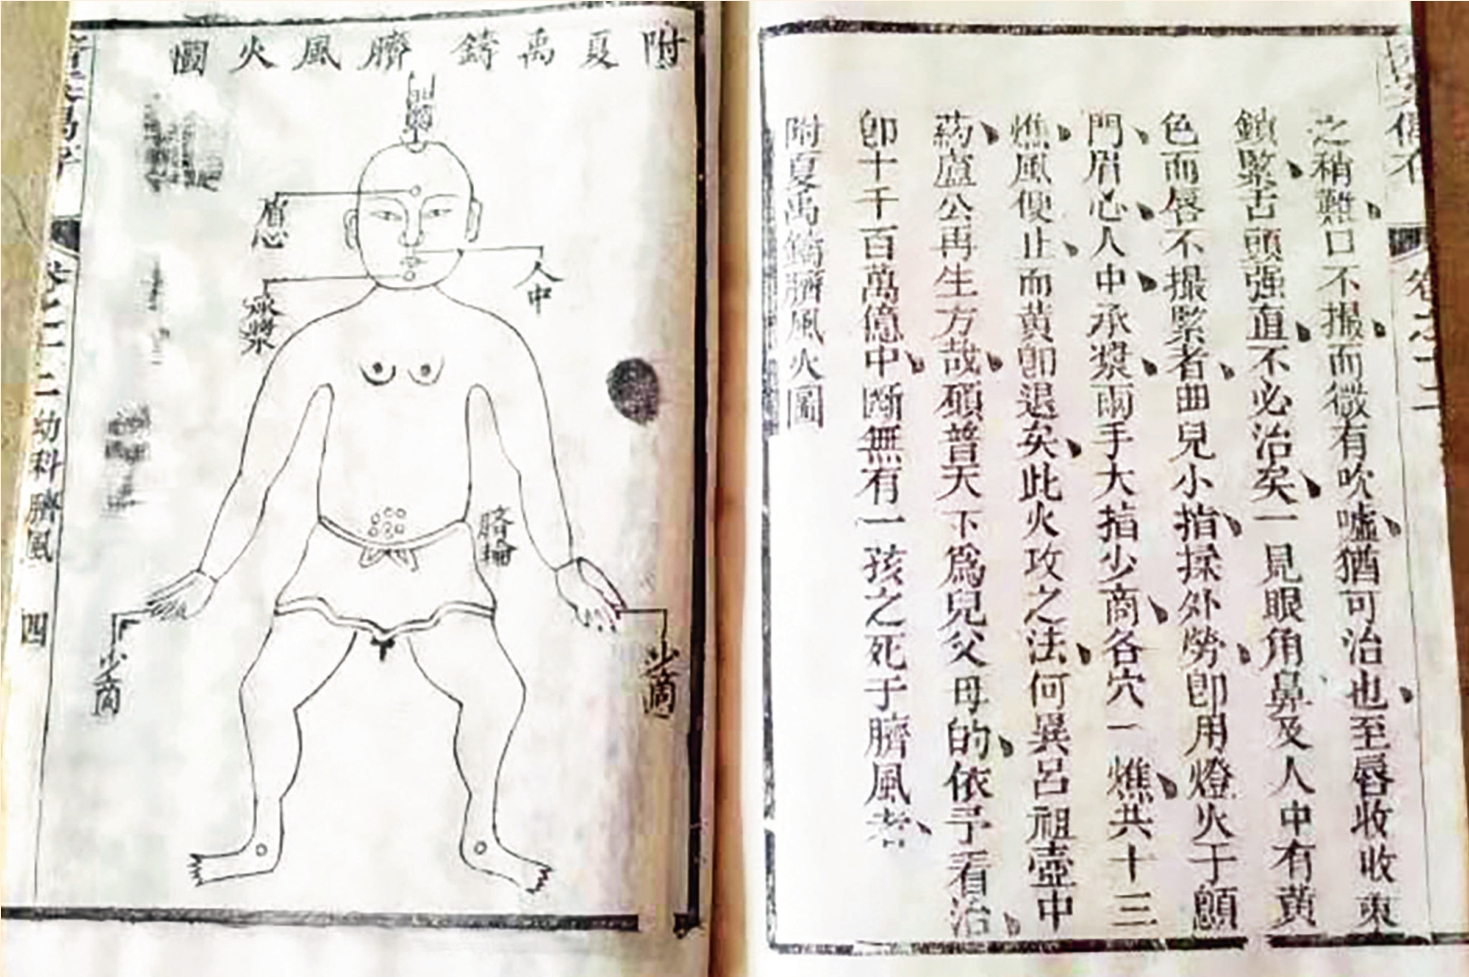 卷之十二
之稍難口不撮而微有吹噓猶可治也至唇收收束
鎖緊舌頭强直不必治矣一見眼角鼻及人中有黃
色而唇不撮緊者曲兒小指揉外勞卽用燈火于顖
門眉心人中承漿兩手大指少商各穴一燋共十三
燋風便止而黃卽退矣此火攻之法何異呂祖壺中
葯盧公再生方哉願普天下爲兒父母的依予看治
卽十千百萬億中斷無有一孩之死于臍風者
附夏禹鑄臍風火圖
附夏禹鑄臍風火圖
眉心
人中
承漿
臍輪
少商
少商
卷之十二 幼科臍風 四